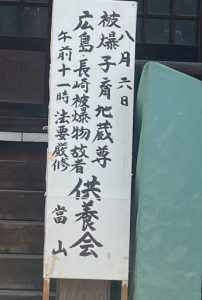 八月六日
被爆子育地蔵尊
広島長崎被爆物故者供養会
午前十一時法要厳修
當山